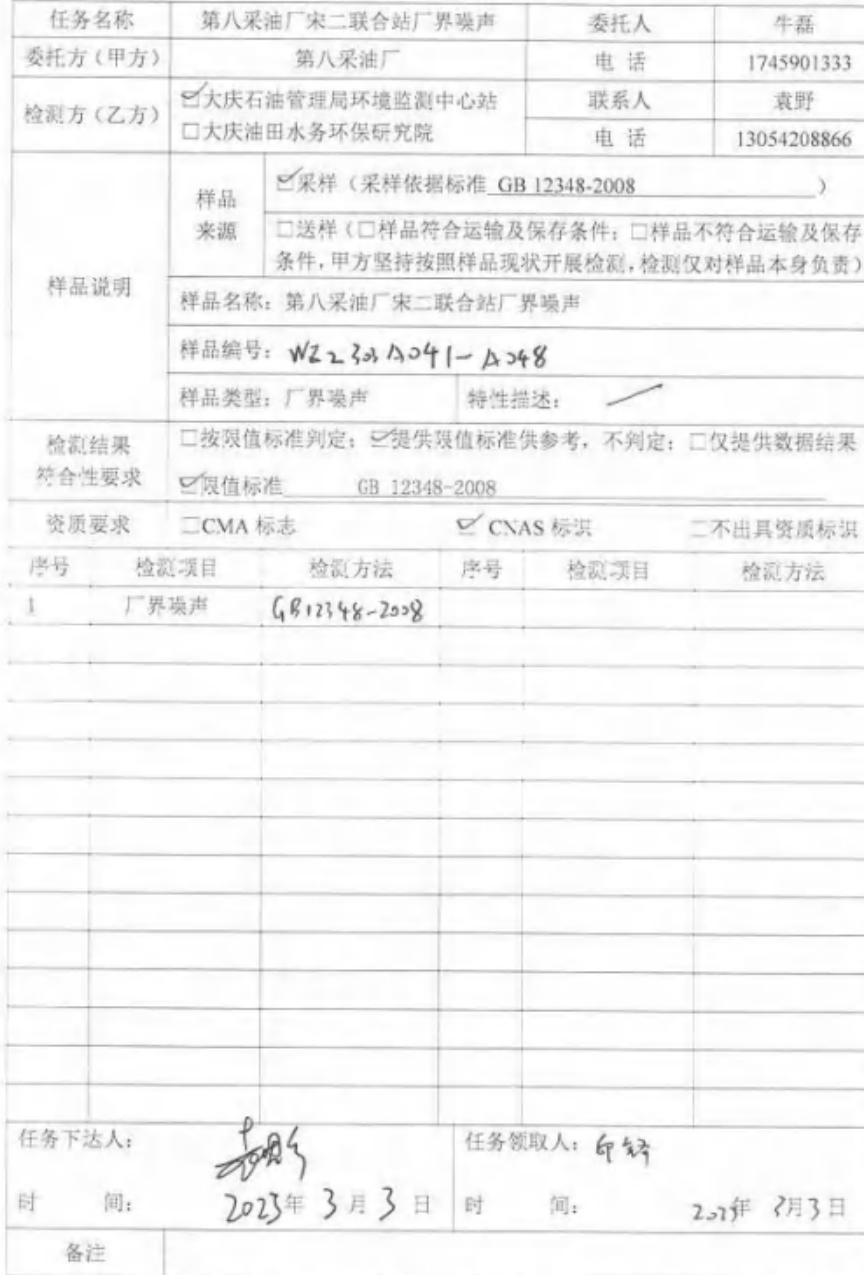 任务名称 第八采油厂宋二联合站厂界噪声 委托人 牛磊
委托方（甲方） 第八采油厂 电 话 1745901333
检测方（乙方） ☑大庆石油管理局环境监测中心站 联系人 袁野
□大庆油田水务环保研究院 电 话 13054208866
样品说明 样品来源 ☑采样（采样依据标准 GB 12348-2008 ）
□送样（□样品符合运输及保存条件；□样品不符合运输及保存
条件，甲方坚持按照样品现状开展检测，检测仅对样品本身负责）
样品名称：第八采油厂宋二联合站厂界噪声
样品编号：WZ2303A041-A048
样品类型：厂界噪声 特性描述：
检测结果
符合性要求
□按限值标准判定；☑提供限值标准供参考，不判定；□仅提供数据结果
☑限值标准 GB 12348-2008
资质要求 □CMA 标志 ☑ CNAS 标识 □不出具资质标识
序号 检测项目 检测方法 序号 检测项目 检测方法
1 厂界噪声 GB12348-2008
任务下达人： 任务领取人：
时 间： 2023年 3月 3日 时 间： 2023年 3月3日
备注